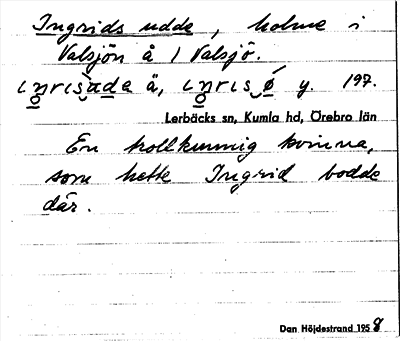 Ingrids udde, holme i
Valsjön å 1 Valsjö.
å, y. 197.
Lerbäcks sn, Kumla hd, Örebro län
En trollkunnig kvinna,
som hette Ingrid bodde
där.
Dan Höjdestrand 1958